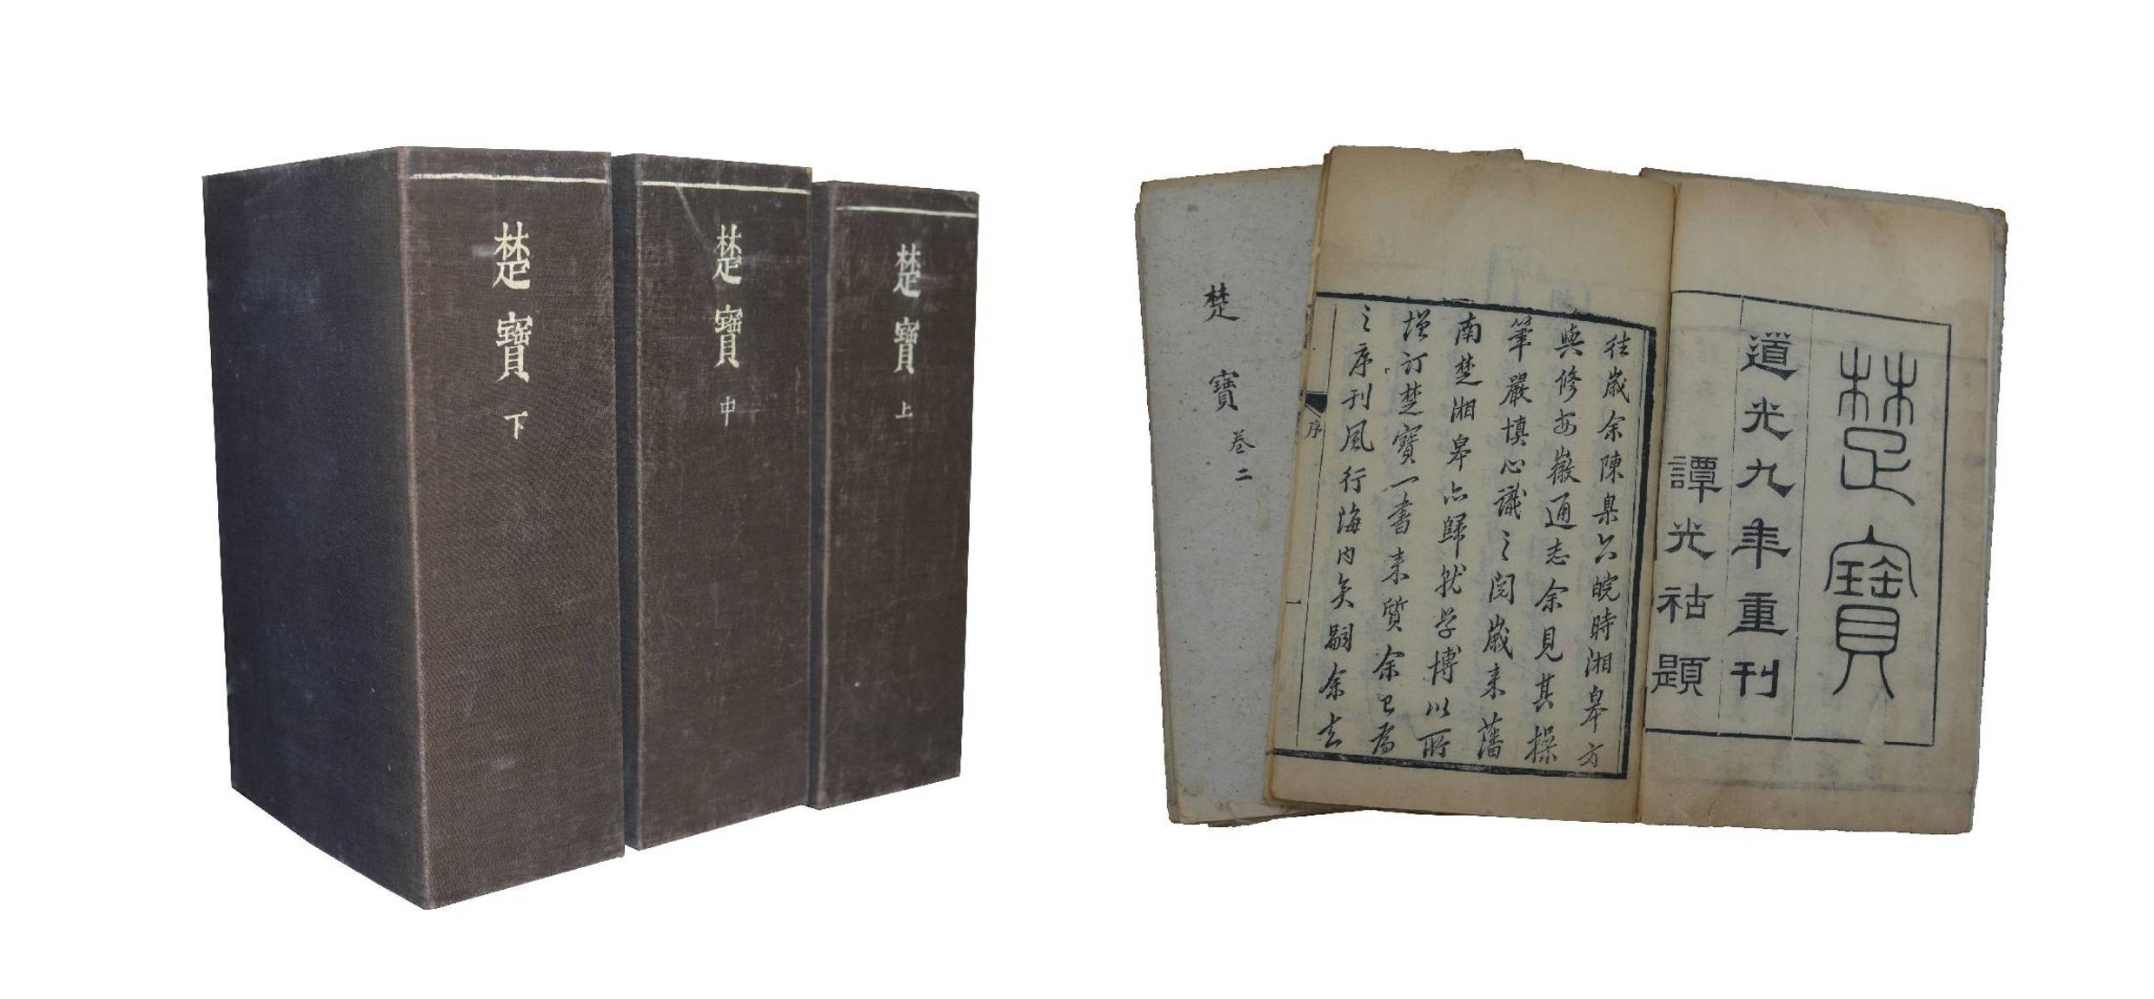 楚寶 下
楚寶 中
楚寶 上
楚寶 卷二
楚寶
道光九年重刊
譚光祜題
往歲余陳臬公皖時湘皋方
與修安徽通志余見其操
筆嚴慎心識之閱歲來藩
南楚湘皋亦歸就学博以所
增訂楚寶一書来質余已爲
之序刊風行海内矣嗣余去
序
一